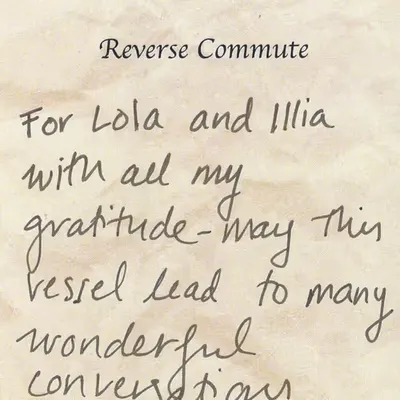 Reverse Commute
For Lola and Illia
with all my
gratitude - may this
vessel lead to many
wonderful
conversations